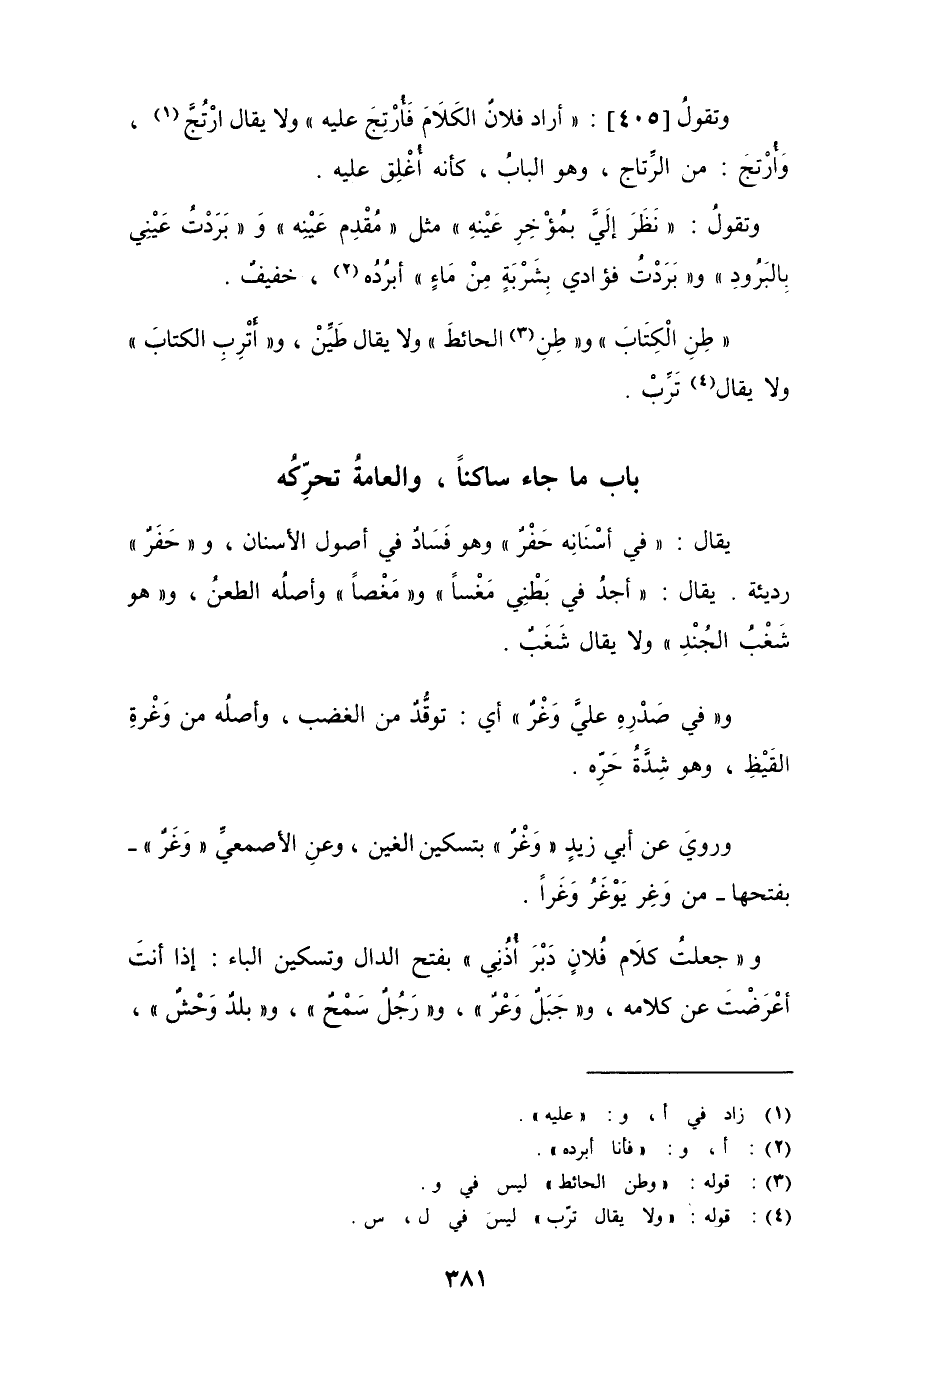 وتقولُ [٤٠٥] : « أراد فلانٌ الكَلَامَ فَأُرْتِجَ عليه » ولا يقال ارْتُجَّ (١) ،
وَأُرْتجَ : من الرِّتاج ، وهو البابُ ، كأنه أُغْلِق عليه .
وتقولُ : « نَظَرَ إلَيَّ بمُؤْخِرِ عَيْنهِ » مثل « مُقْدِم عَيْنِه » وَ « بَرَدْتُ عَيْنِي
بِالبَرُودِ » و« بَرَدْتُ فؤادي بِشَرْبَةٍ مِنْ مَاءٍ » أبرُدُه (٢) ، خفيفٌ .
« طِنِ الْكِتَابَ » و« طِنِ (٣) الحائطَ » ولا يقال طَيِّنْ ، و« أَتْرِبِ الكتابَ »
ولا يقال (٤) تَرِّبْ .
باب ما جاء ساكناً ، والعامةُ تحرِّكُه
يقال : « في أسْنَانِه حَفْرٌ » وهو فَسَادٌ في أصول الأسنان ، و « حَفَرٌ »
رديئة . يقال : « أجدُ في بَطْنِي مَغْساً » و« مَغْصاً » وأصلُه الطعنُ ، و« هو
شَغْبُ الجُنْدِ » ولا يقال شَغَبٌ .
و« في صَدْرِهِ عليَّ وَغْرٌ » أي : توقُّدٌ من الغضب ، وأصلُه من وَغْرةِ
القَيْظِ ، وهو شِدَّةُ حَرِّه .
ورويَ عن أبي زيدٍ « وَغْرٌ » بتسكين الغين ، وعنِ الأصمعيِّ « وَغَرٌ » -
بفتحها - من وَغِر يَوْغَرُ وَغَراً .
و « جعلتُ كلَام فُلانٍ دَبْرَ أُذُنِي » بفتح الدال وتسكين الباء : إذا أنتَ
أعْرَضْتَ عن كلامه ، و« جَبَلٌ وَعْرٌ » ، و« رَجُلٌ سَمْحٌ » ، و« بلدٌ وَحْشٌ » ،
(١) زاد في أ ، و : « عليه » .
(٢) : أ ، و : « فأنا أبرده » .
(٣) : قوله : « وطن الحائط » ليس في و .
(٤) : قوله : « ولا يقال ترّب » ليس في ل ، س .
٣٨١